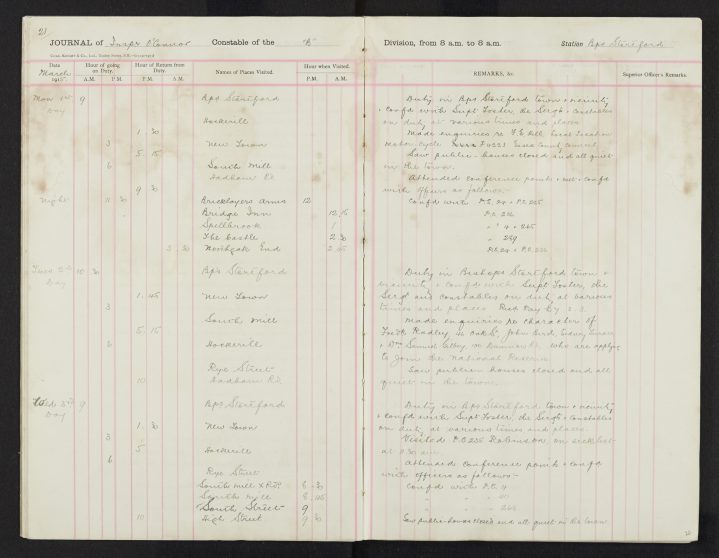 21
JOURNAL of Inspr O'Connor Constable of the "B" Division, from 8 a.m. to 8 a.m. Station Bps Stortford
Date Hour of going on Duty. Hour of Return from Duty. Names of Places Visited. Hour when Visited. REMARKS, &c. Superior Officer's Remarks.
March 1915 A.M. P.M. A.M. P.M. P.M. A.M.
Mon 1st 9 Bps Stortford Duty in Bps Stortford town & vicinity
Day & confd with Supt Foster, the Sergts & Constables
Hockerill on duty at various times and places
1 . 30 Made enquiries re
3 New Town Motor Cycle Essex County Council
5 . 15 Saw public-houses closed and all quiet
6 South Mill in the town.
Hadham Rd Attended conference points & met & confd
9 30 with officers as follows:-
Night 11 30 Bricklayers Arms 12 Confd with P.S. 24 & P.C. 205
Bridge Inn 12.15 P.C. 226
Spellbrook 1 " 4 & 265
The Castle 2 30 " 239
3 . 30 Northgate End 2 45
Tues 2nd 10 30 Bps Stortford Duty in Bishops Stortford town &
Day vicinity & confd with Supt Foster, the
1 . 45 New Town Sergts and Constables on duty at various
3 times and places
South Mill Made enquiries re character of
5 . 15 Fredk Radley, John Bird, Sidney
6 Hockerill & Wm Samuel who are applying
to join the National Reserve.
Rye Street Saw public-houses closed and all
10 Hadham Rd. quiet in the town.
Wed 3rd 9 Bps Stortford Duty in Bps Stortford town & vicinity
Day & confd with Supt Foster, the Sergts & Constables
1 . 30 New Town on duty at various times and places.
3 Visited P.C. 235 Robinson, on sick list
5 Hockerill at 11.30 a.m.
6 Attended conference points & confd
Rye Street with officers as follows:-
South Mill X Rds 8 . 30 Confd with P.C. 4
South Mill 8 . 45
South Street 9
10 High Street 9 30 Saw public-houses closed and all quiet in the town